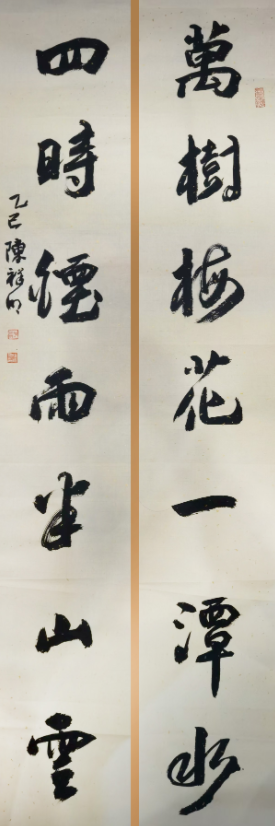 萬樹梅花一潭水
四時煙雨半山雲
乙巳陳祥明